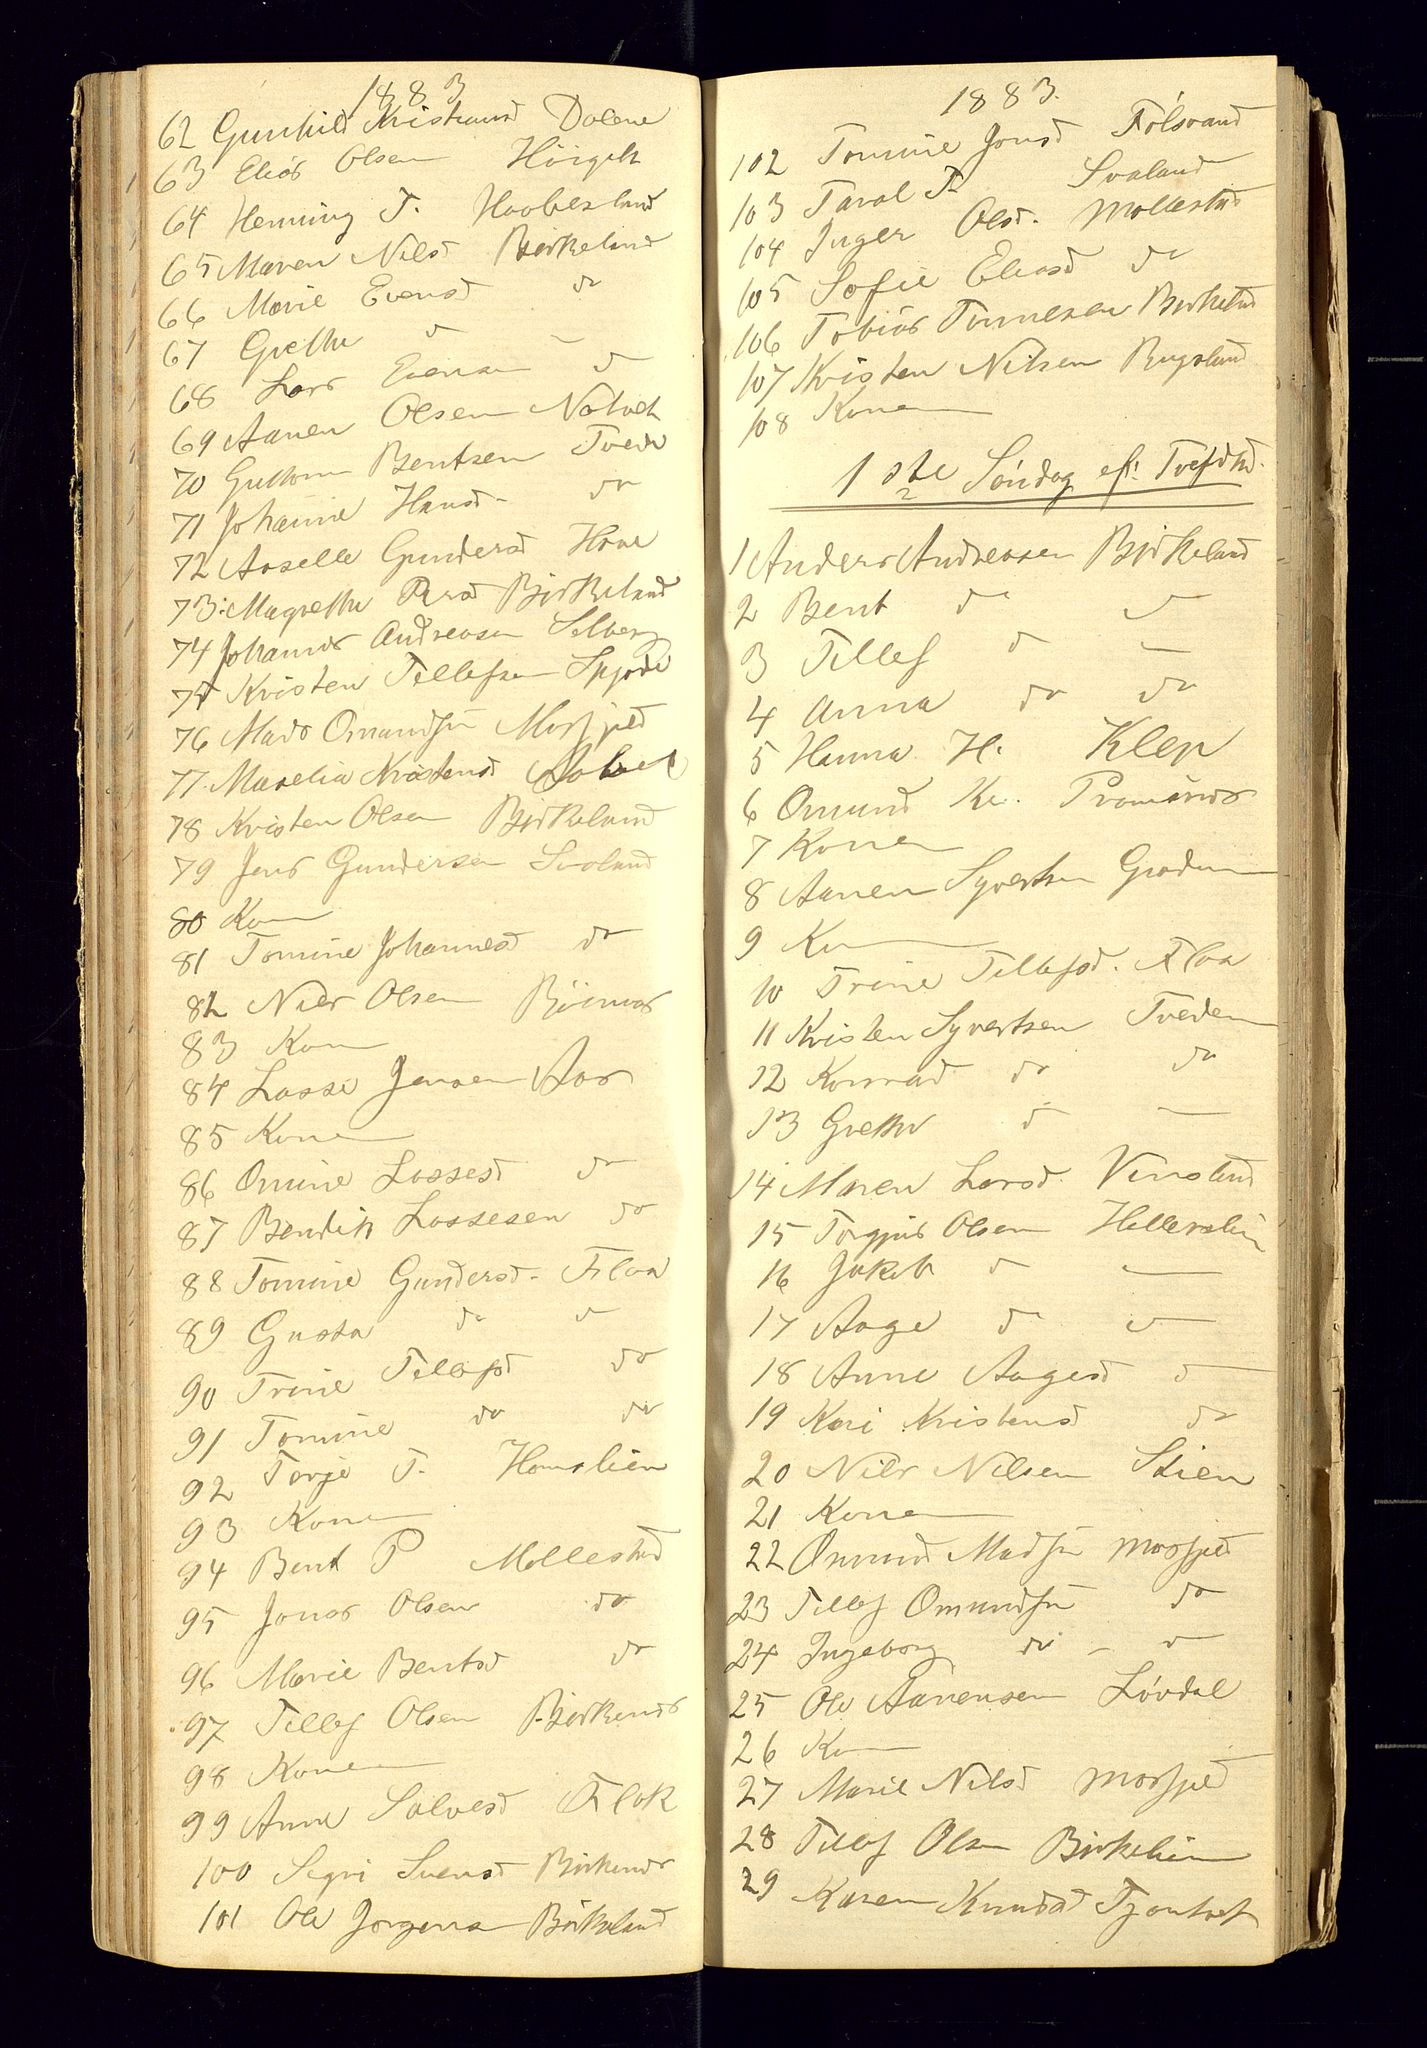 1883
62 Gunhild Kristiansd Dalene
63 Elias Olsen Höigilt
64 Henning T. Haabesland
65 Maren Nilsd Birkeland
66 Marie Evensd do
67 Grethe do —
68 Lars Evensen do
69 Aanen Olsen Natvet
70 Guttorm Bentsen Tvede
71 Johanne Hansd do
72 Aaselle Gundersd Hove
73 Magrethe Persd Birkeland
74 Johannes Andreasen
75 Kristen Tellefsen
76 Mads Omundsen Mosfjeld
77 Maselia Kristensd
78 Kristen Olsen Birkeland
79 Jens Gundersen Svaland
80 Kone
81 Tomine Johannesd do
82 Nils Olsen
83 Kone
84 Lasse Jensen Aas
85 Konen
86 Omine Lassesd do
87 Bendik Lassesen do
88 Tomine Gundersd. Flaa
89 Gusta do do
90 Trine Tellefsd do
91 Tomine do do
92 Torje T. Homslien
93 Konen
94 Bent P Mollestad
95 Jonas Olsen do
96 Marie Bentsd do
97 Tellef Olsen Birkenes
98 Konen
99 Anne Salvesd Flak
100 Segri Svensd Birkenes
101 Ole Jorgensen Birkeland
1883.
102 Tomine Jonsd Fölsvand
103 Taral T. Svaland
104 Inger Olsd. Mollestad
105 Sofie Eliasd do
106 Tobias Tonnesen Birkeland
107 Kristen Nilsen Rugsland
108 Konen
1ste Söndag eft
1 Anders Andreasen Birkeland
2 Bent do do
3 Tellef do —
4 Anna do do
5 Hanna H. Klep
6 Omund Kr.
7 Konen
8 Aanen Syvertsen
9 Kone
10 Trine Tellefsd. Flaa
11 Kristen Syvertsen Tveden
12 Konrad do do
13 Grethe do —
14 Maren Larsd.
15 Torgius Olsen Hellerslien
16 Jakob do —
17 Aage do do
18 Anne Aagesd do
19 Kari Kristensd do
20 Nils Nilsen Stien
21 Konen
22 Omund Madsen Mosfjeld
23 Tellef Omundsen do
24 Ingeborg do - do
25 Ole Aanensen Lövdal
26 Kone
27 Marie Nilsd Mosfjeld
28 Tellef Olsen Birkelien
29 Karen Knudsd Tjontvet